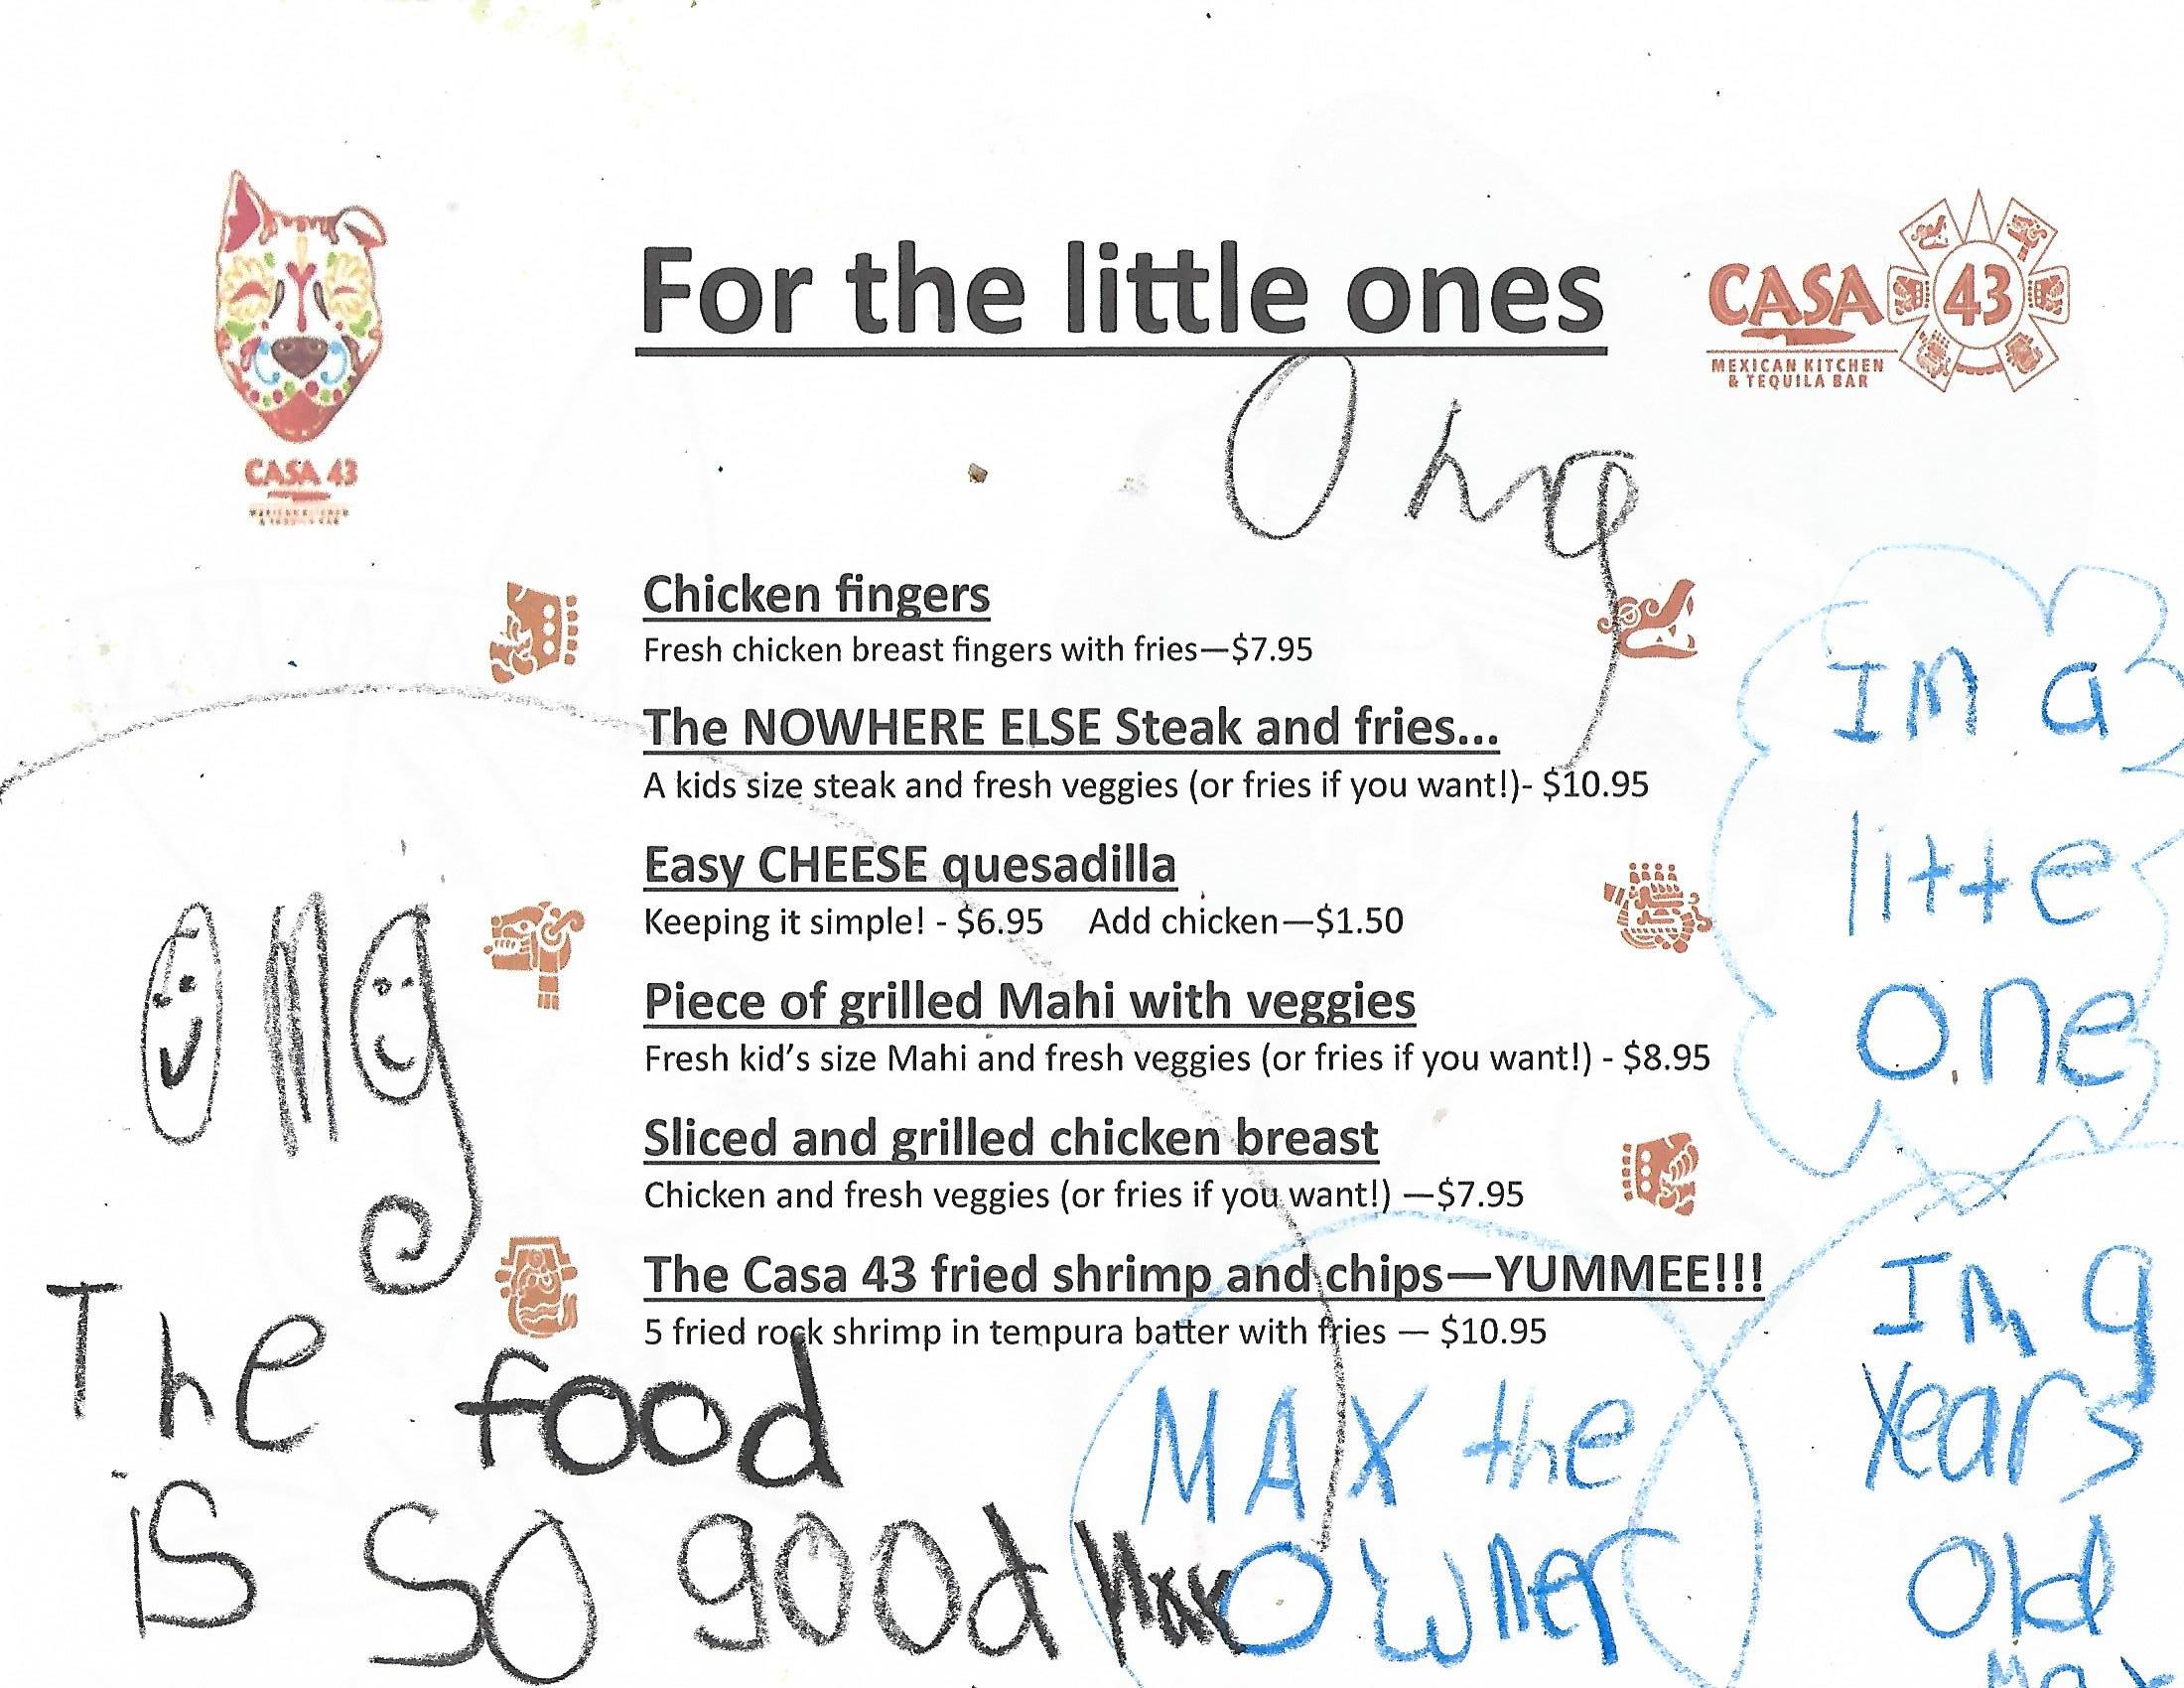 For the little ones
CASA 43
MEXICAN KITCHEN
& TEQUILA BAR
CASA 43
Omg
Chicken fingers
Fresh chicken breast fingers with fries—$7.95
The NOWHERE ELSE Steak and fries...
A kids size steak and fresh veggies (or fries if you want!)- $10.95
Easy CHEESE quesadilla
Keeping it simple! - $6.95 Add chicken—$1.50
Piece of grilled Mahi with veggies
Fresh kid's size Mahi and fresh veggies (or fries if you want!) - $8.95
Sliced and grilled chicken breast
Chicken and fresh veggies (or fries if you want!) —$7.95
The Casa 43 fried shrimp and chips—YUMMEE!!!
5 fried rock shrimp in tempura batter with fries — $10.95
Im a
litte
one
omg
The food
is so good Max
MAX the
Owner
Im 9
years
old
Max